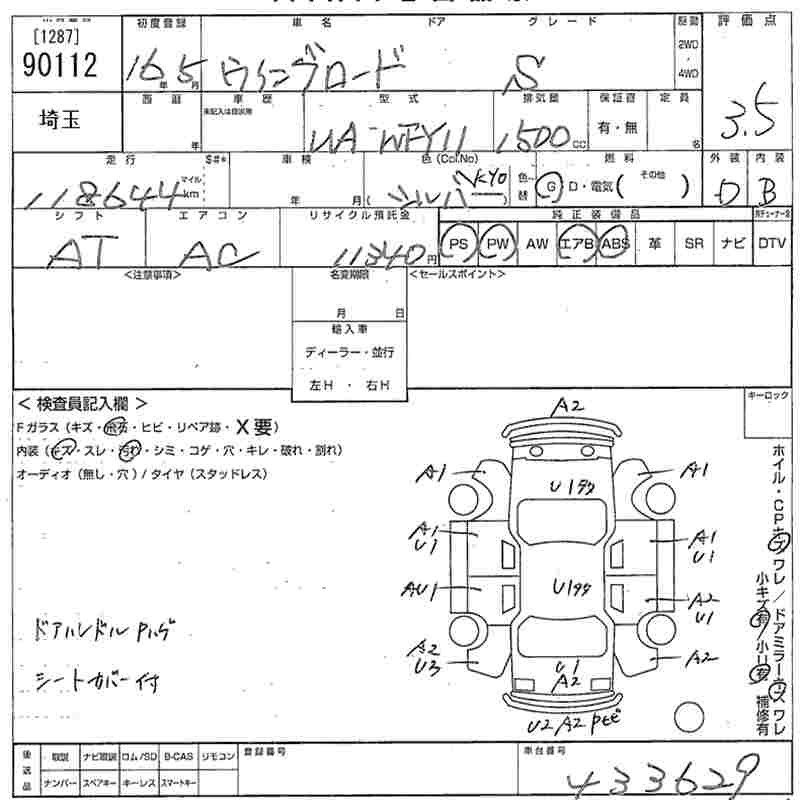 [1287]
90112
初度登録 車名 ドア グレード 駆動 評価点
16年 5月 ウィングロード S 2WD 4WD 3.5
埼玉 西暦 年 車歴 未記入は自家用 型式 排気量 保証書 定員
UA-WFY11 1500cc 有・無 名
走行 S#* 車検 色(Col.No) 燃料 外装 内装
118644 マイル km 年 月 シルバ KY0 色替 G D・電気( その他 ) D B
シフト エアコン リサイクル預託金 純正装備品
AT AC 11340円 PS PW AW エアB ABS 革 SR ナビ DTV
<注意事項> 名変期限 <セールスポイント>
月 日
輸入車
ディーラー・並行
左H ・ 右H
<検査員記入欄> キーロック
Fガラス(キズ・飛石・ヒビ・リペア跡・X要)
内装(キズ・スレ・汚れ・シミ・コゲ・穴・キレ・破れ・割れ)
オーディオ(無し・穴)/タイヤ(スタッドレス)
A2
A1 U1 A1
A1 U1 A1 U1
AU1 U1 A2 U1
A2 U3 U1 A2 A2
U2 A2
ドアハンドル
シートカバー付
ホイル・CPキズ ワレ/ドアミラーキズ ワレ
小キズ有/小凹有 補修有
後送品 取説 ナビ取説 ロム/SD B-CAS リモコン 登録番号 車台番号
ナンバー スペアキー キーレス スマートキー 433629